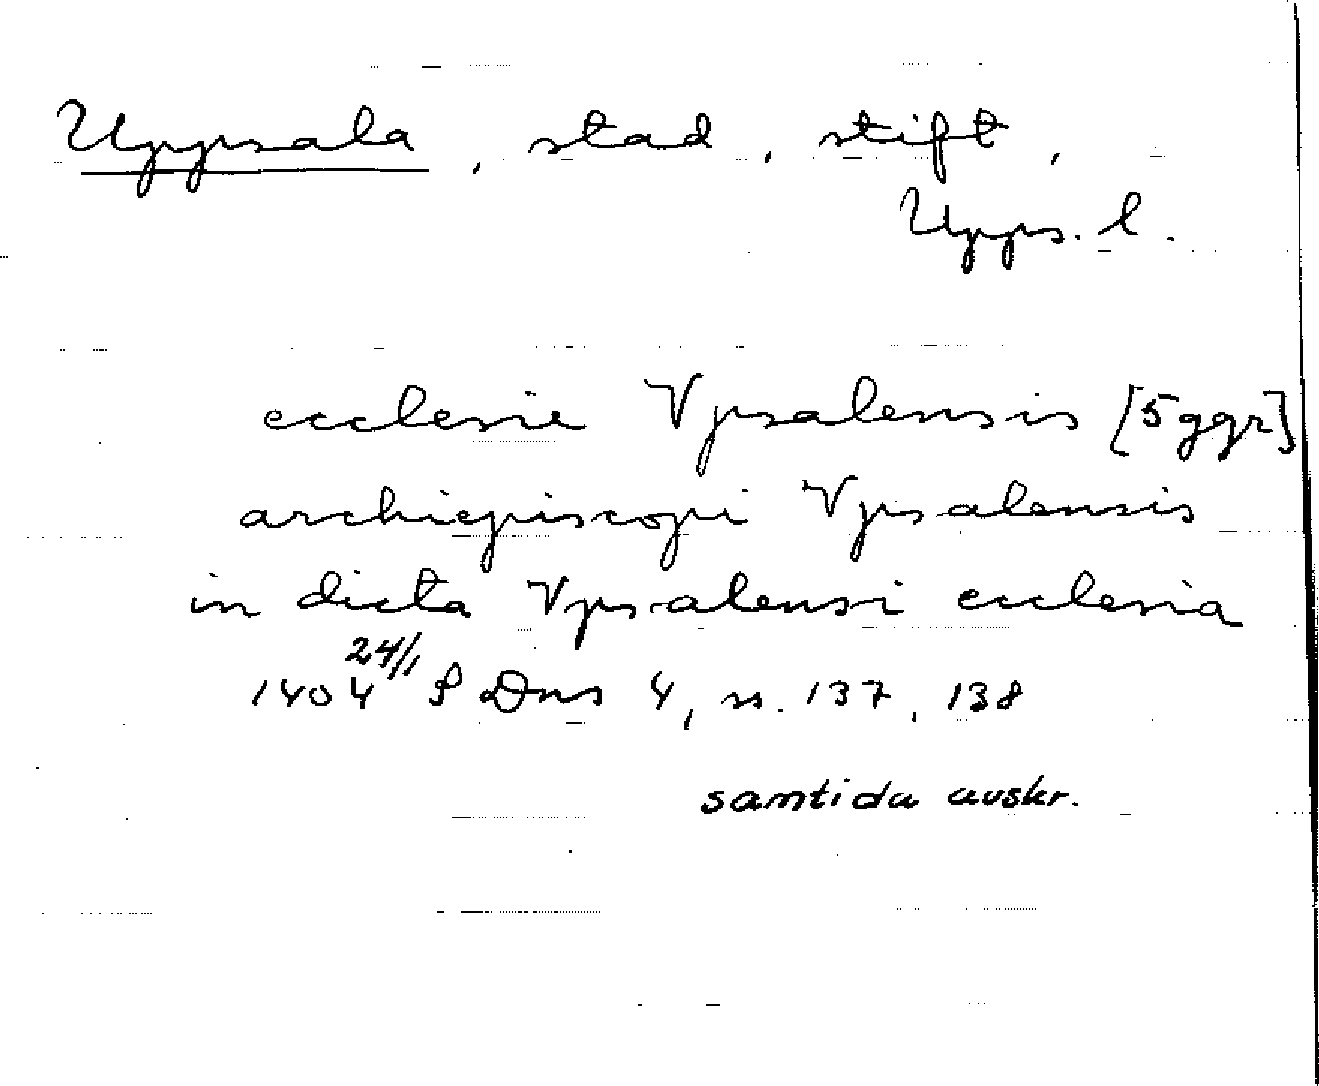 Uppsala, stad, stift,
Upps. l.
ecclesie Vpsalensis [5 ggr]
archiepiscopi Vpsalensis
in dicta Vpsalensi ecclesia
1404 24/1 SDns 4, n. 137, 138
samtida avskr.